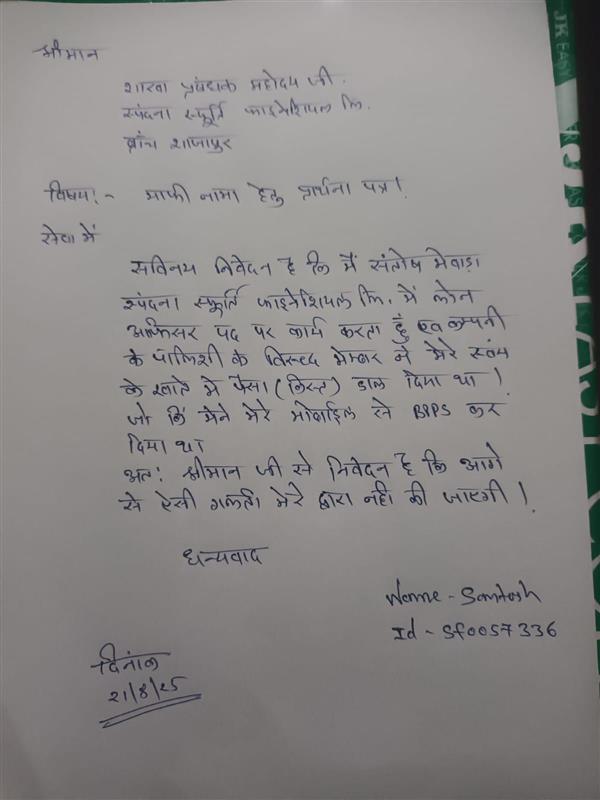 श्रीमान
शाखा प्रबंधक महोदय जी.
स्पंदना स्फूर्ति फाइनेंशियल लि.
ब्रांच शाजापुर
विषय:- माफी नामा हेतु प्रार्थना पत्र।
सेवा में
सविनय निवेदन है कि मैं संतोष मेवाडा
स्पंदना स्फूर्ति फाइनेशियल लि. में लोन
आफिसर पद पर कार्य करता हुँ एव कम्पनी
के पॉलिशी के विरुध्द मेम्बर ने मेरे स्वंय
के खाते मे पैसा (किस्त) डाल दिया था।
जो कि मैने मेरे मोबाईल से BPPS कर
दिया था
अत: श्रीमान जी से निवेदन है कि आगे
से ऐसी गलती मेरे द्वारा नही की जाएगी।
धन्यवाद
Name - Santosh
Id - Sf0057336
दिनांक
21/8/25
JK EASY